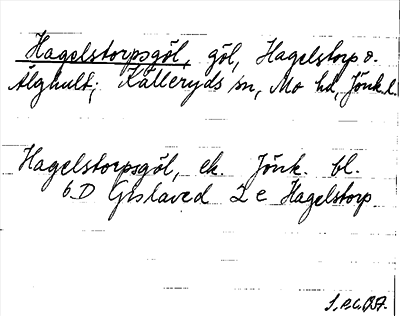 Hagelstorpsgöl, göl, Hagelstorp o.
Älghult; Kålleryds sn, Mo hd, Jönk.l.
Hagelstorpsgöl, ek. Jönk. bl.
6 D Gislaved 2 e Hagelstorp